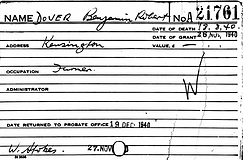 NAME Dover Benjamin Robert No A 21761
DATE OF DEATH 12.3.40
DATE OF GRANT 26 Nov, 1940
ADDRESS Kensington VALUE, £ -
OCCUPATION Turner.
ADMINISTRATOR
DATE RETURNED TO PROBATE OFFICE 19 DEC 1940
W. Stokes 27. NOV